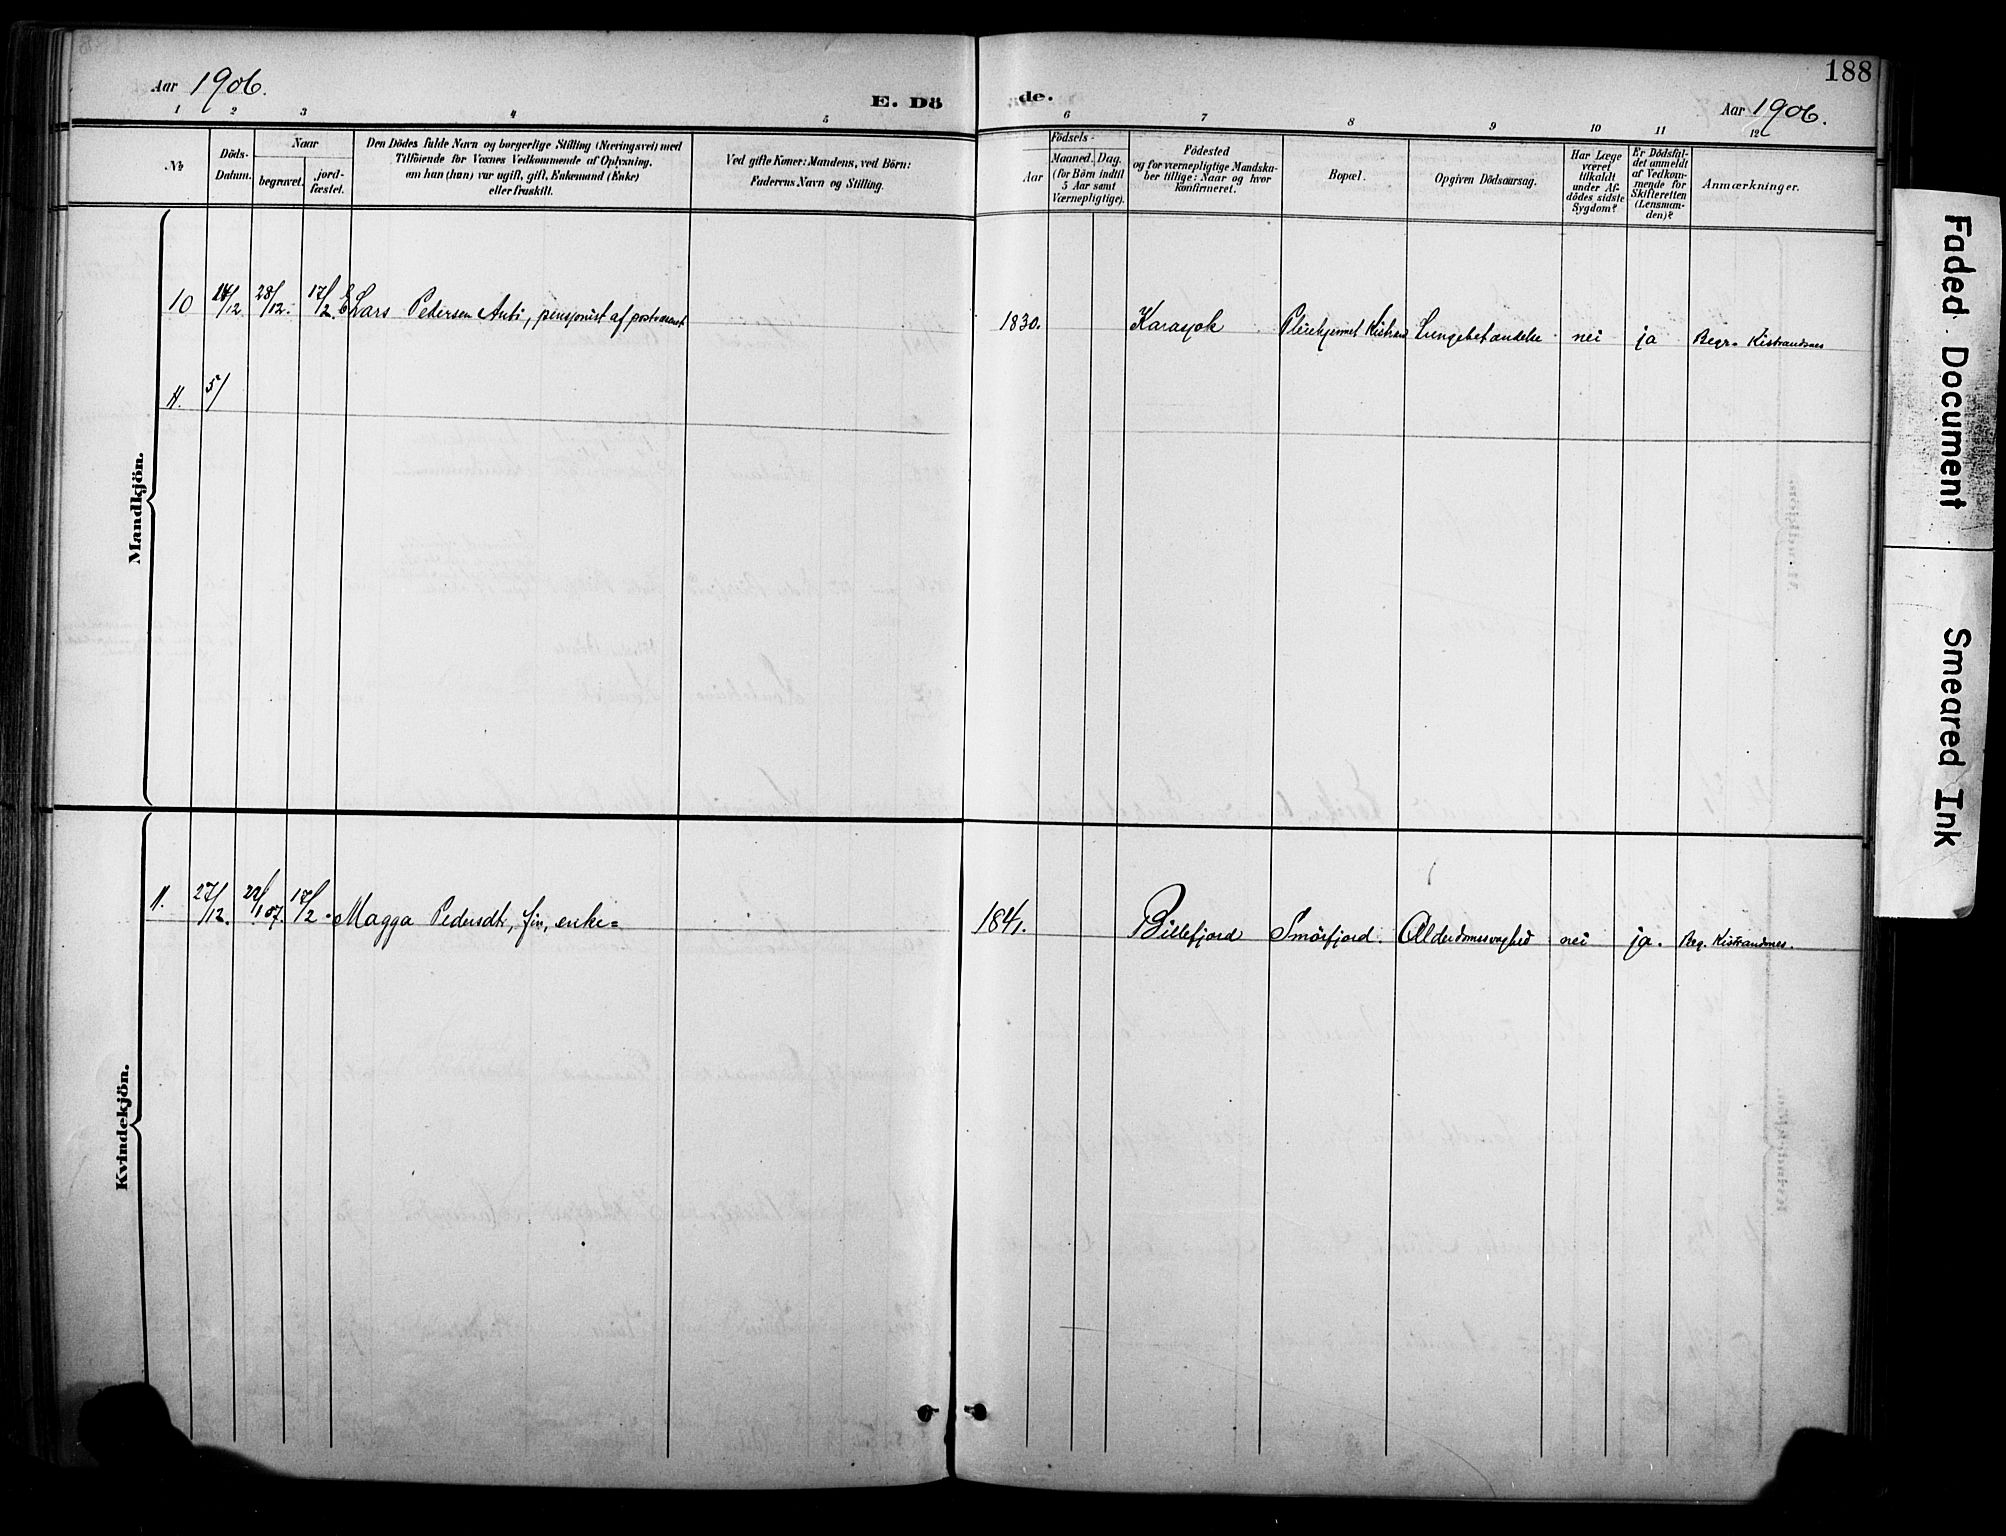 188
Aar 1906.
E. Dö
de.
Aar 1906.
1 2 3 4 5 6 7 8 9 10 11 12
No
Döds-
Datum.
Naar
begravet.
jord-
fæstet.
Den Dödes fulde Navn og borgerlige Stilling (Næringsvei) med
Tilföiende for Voxnes Vedkommende af Oplysning,
om han (hun) var ugift, gift, Enkemand (Enke)
eller fraskilt.
Ved gifte Koner: Mandens, ved Börn:
Faderens Navn og Stilling.
Födsels-
Aar
Maaned. Dag.
(for Börn indtil
5 Aar samt
Værnepligtige).
Födested
og for værnepligtige Mandska-
ber tillige: Naar og hvor
konfirmeret.
Bopæl.
Opgiven Dödsaarsag.
Har Læge
været
tilkaldt
under Af-
dödes sidste
Sygdom?
Er Dödsfal-
det anmeldt
af Vedkom-
mende for
Skifteretten
(Lensman-
den)?
Anmærkninger.
Mandkjön.
10 14/12 28/12. 17/2. Lars Pedersen Anti, pensjonist af postvæsenet 1830. Karasjok Pleiehjemmet Kistrand Lungebetændelse nei ja Begr. Kistrandnes
11. 5/
Kvindekjön.
11. 27/12. 22/1 07. 17/2. Magga Pedersdt, fin, enke= 1841. Billefjord Smörfjord. Alderdomssvaghed nei ja. Beg. Kistrandnes.
Faded Document
Smeared Ink